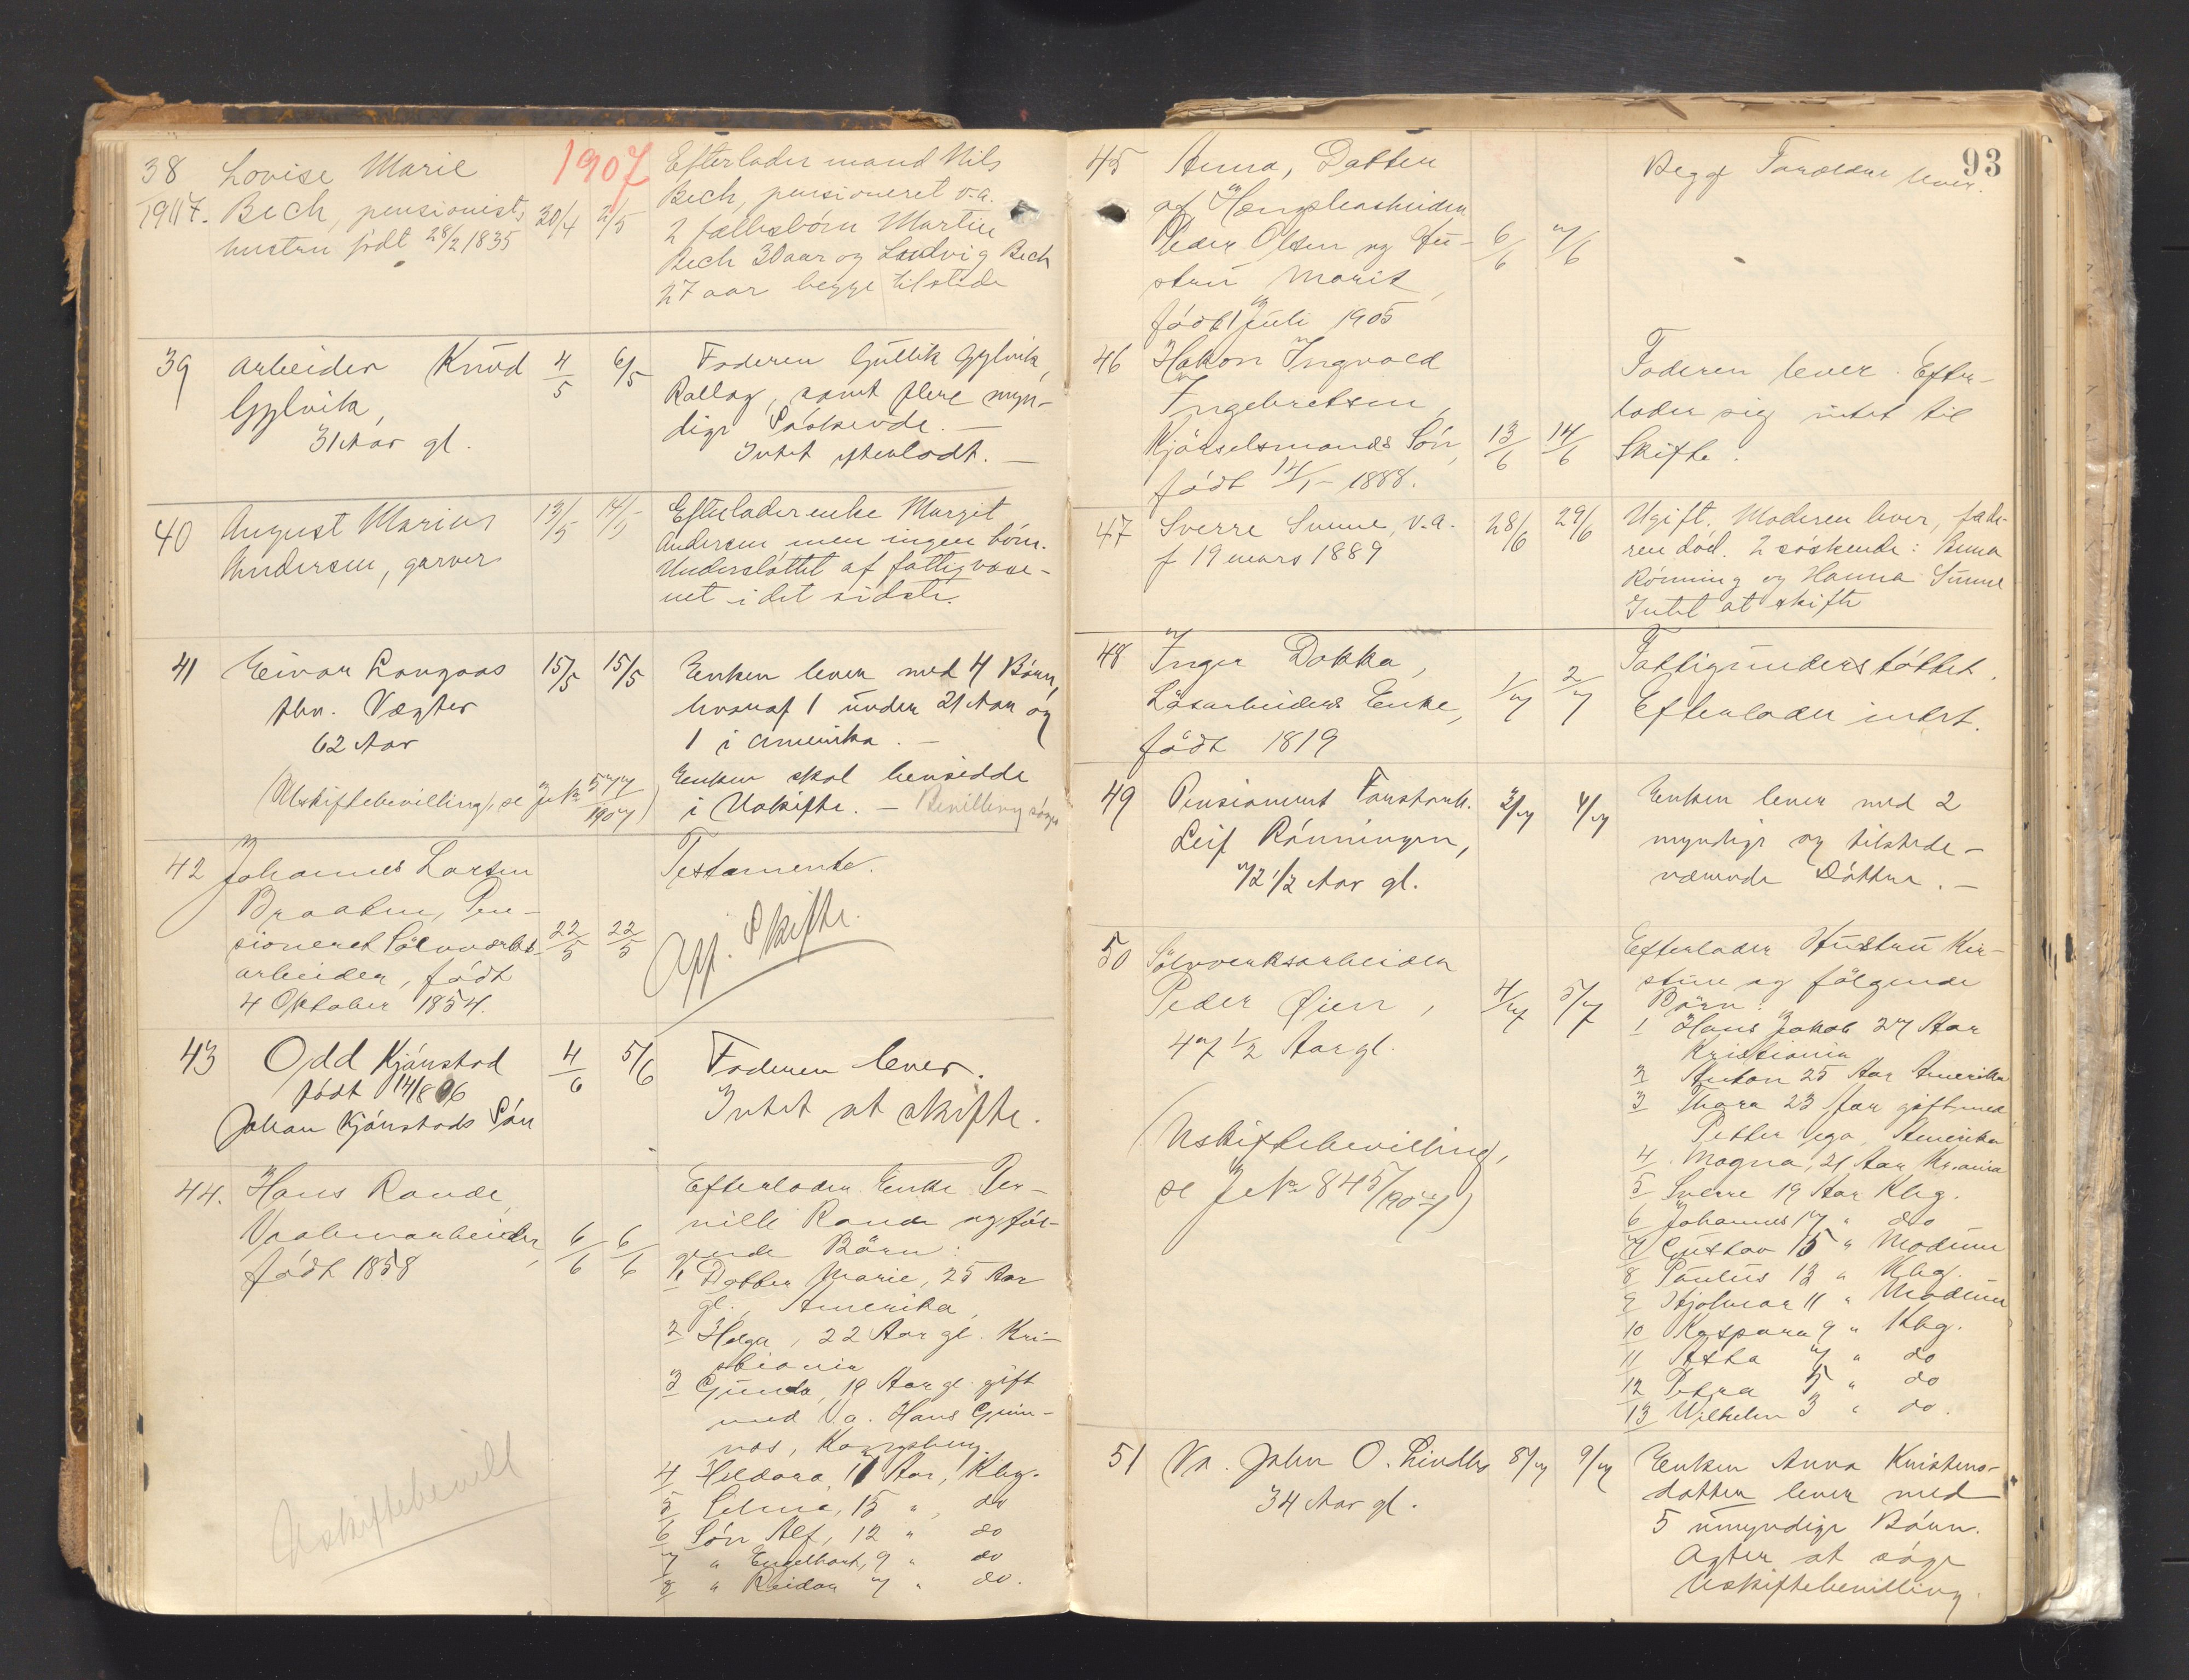 1907
38 Lovise Marie
1907. Bech, pensionists
hustru født 28/2 1835
30/4 2/5
Efterlader mand Nils
Bech, pensioneret v.a.
2 fællesbørn Martin
Bech 30 aar og Ludvig Bech
27 aar begge tilstede
39 Arbeider Knud
Gylvik,
31 Aar gl.
4/5 6/5
Faderen Gullik Gylvik,
Rollag, samt flere myn-
dige Søskende. —
Intet efterladt. —
40 August Marius
Andersen, garver
13/5 14/5
Efterlader enke Margit
Andersen men ingen børn.
Understøttet af fattigvæse-
net i det sidste.
41 Einar Langaas
fhv. Vægter
62 Aar
15/5 15/5
(Uskiftebevilling, se J. No 577/1907)
Enken lever med 4 Børn,
hvoraf 1 under 21 Aar og
1 i Amerika. —
Enken skal hensidde
i Uskifte. — Bevilling søges
42 Johannes Larsen
Braaten, Pen-
sioneret Sølvværks-
arbeider, født
4 Oktober 1854.
22/5 22/5
Testamente.
Off. Skifte.
43 Odd Kjønstad
født 14/8 06
Johan Kjønstads Søn
4/6 5/6
Faderen lever.
Intet at skifte.
44. Hans Rande,
Vaabenarbeider,
født 1858
6/6 6/6
Efterlader Enke Per-
nille Rande og føl-
gende Børn:
1 Datter Marie, 25 Aar
gl., Amerika,
2 Helga, 22 Aar gl. Kri-
stiania
3 Gunda, 19 Aar gl. gift
med V.a. Hans
Kongsberg
4 Heldora, 17 Aar, Kbg.
5 Selma, 15 " , do
6 Søn Alf, 12 " do
7 " Engelhart, 9 " do
8 " Reidar 7 " do.
Uskiftebevill
93
45 Anna, Datter
af Hængslearbeider
Peder Olsen og Hu-
stru Marit,
født 1 Juli 1905
6/6 7/6
Begge Forældre lever.
46 Hakon Ingvald
Ingebretsen,
Kjørselsmands Søn,
født 14/1 - 1888.
13/6 14/6
Faderen lever. Efter-
lader sig intet til
Skifte.
47 Sverre Sunne, v.a.
f 19 mars 1889
28/6 29/6
Ugift. Moderen lever, fade-
ren død. 2 søskende: Anna
Rønning og Hanna Sunne
Intet at skifte
48 Inger Dokka,
Løsarbeiders Enke,
født 1819
1/7 2/7
Fattigunderstøttet.
Efterlader intet.
49 Pensioneret Forstank.
Leif Rønningen,
72 1/2 Aar gl.
3/7 4/7
Enken lever med 2
myndige og tilstede-
værende Døttre. —
50 Sølvverksarbeider
Peder Øien,
47 1/2 Aar gl.
4/7 5/7
(Uskiftebevilling,
se J. No 845/1907)
Efterlader Hustru Kir-
stine og følgende
Børn:
1 Hans Jakob 27 Aar
Kristiania
2 Anton 25 Aar Amerika
3 Thora 23 Aar gift med
Petter Vega, Amerika
4 Magna, 21 Aar Kr.ania
5 Sverre 19 Aar Kbg.
6 Johannes 17 " do
7 Gustav 15 " Modum
8 Paulus 13 " Kbg.
9 Hjalmar 11 " Modum
10 Kaspara 9 " Kbg.
11 Asta 7 " do
12 Petra 5 " do
13 Wilhelm 3 " do.
51 Va. John O. Lindbo
34 Aar gl.
8/7 9/7
Enken Anna Kristens-
datter lever med
5 umyndige Børn.
Agter at søge
Uskiftebevilling.